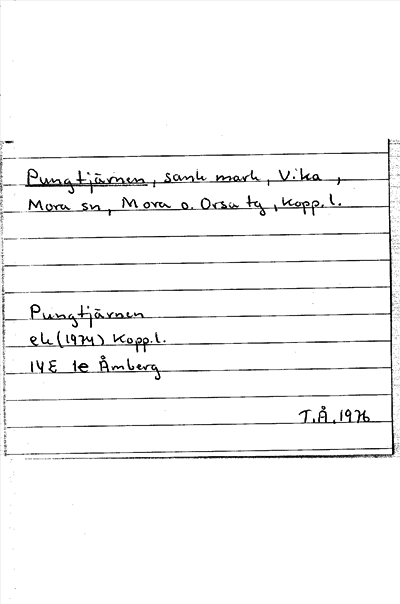 Pungtjärnen, sank mark, Vika,
Mora sn, Mora o. Orsa tg, Kopp.l.
Pungtjärnen
ek (1974) Kopp.l.
14E 1e Åmberg
T.Å. 1976